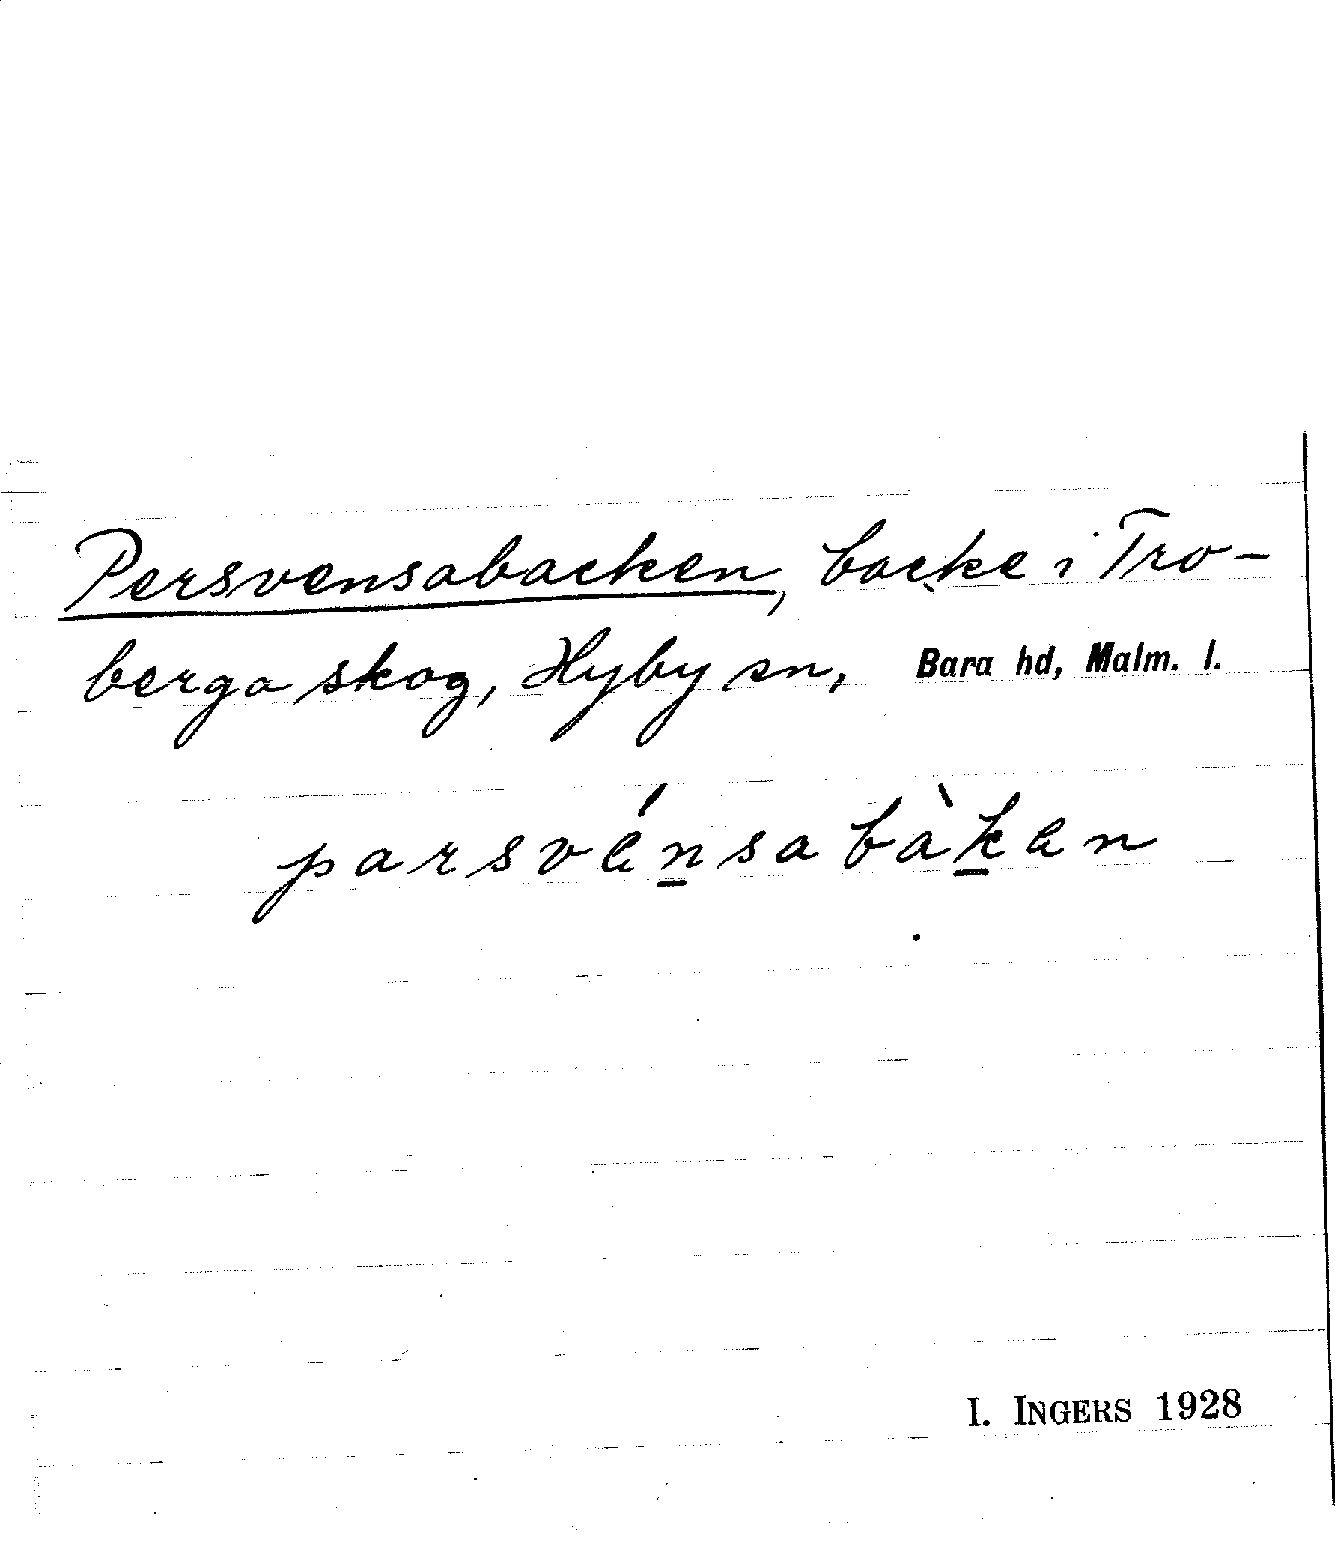 Persvensabacken, backe i Tro-
berga skog, Hyby sn, Bara hd, Malm. l.
parsvénsabàken
I. INGERS 1928